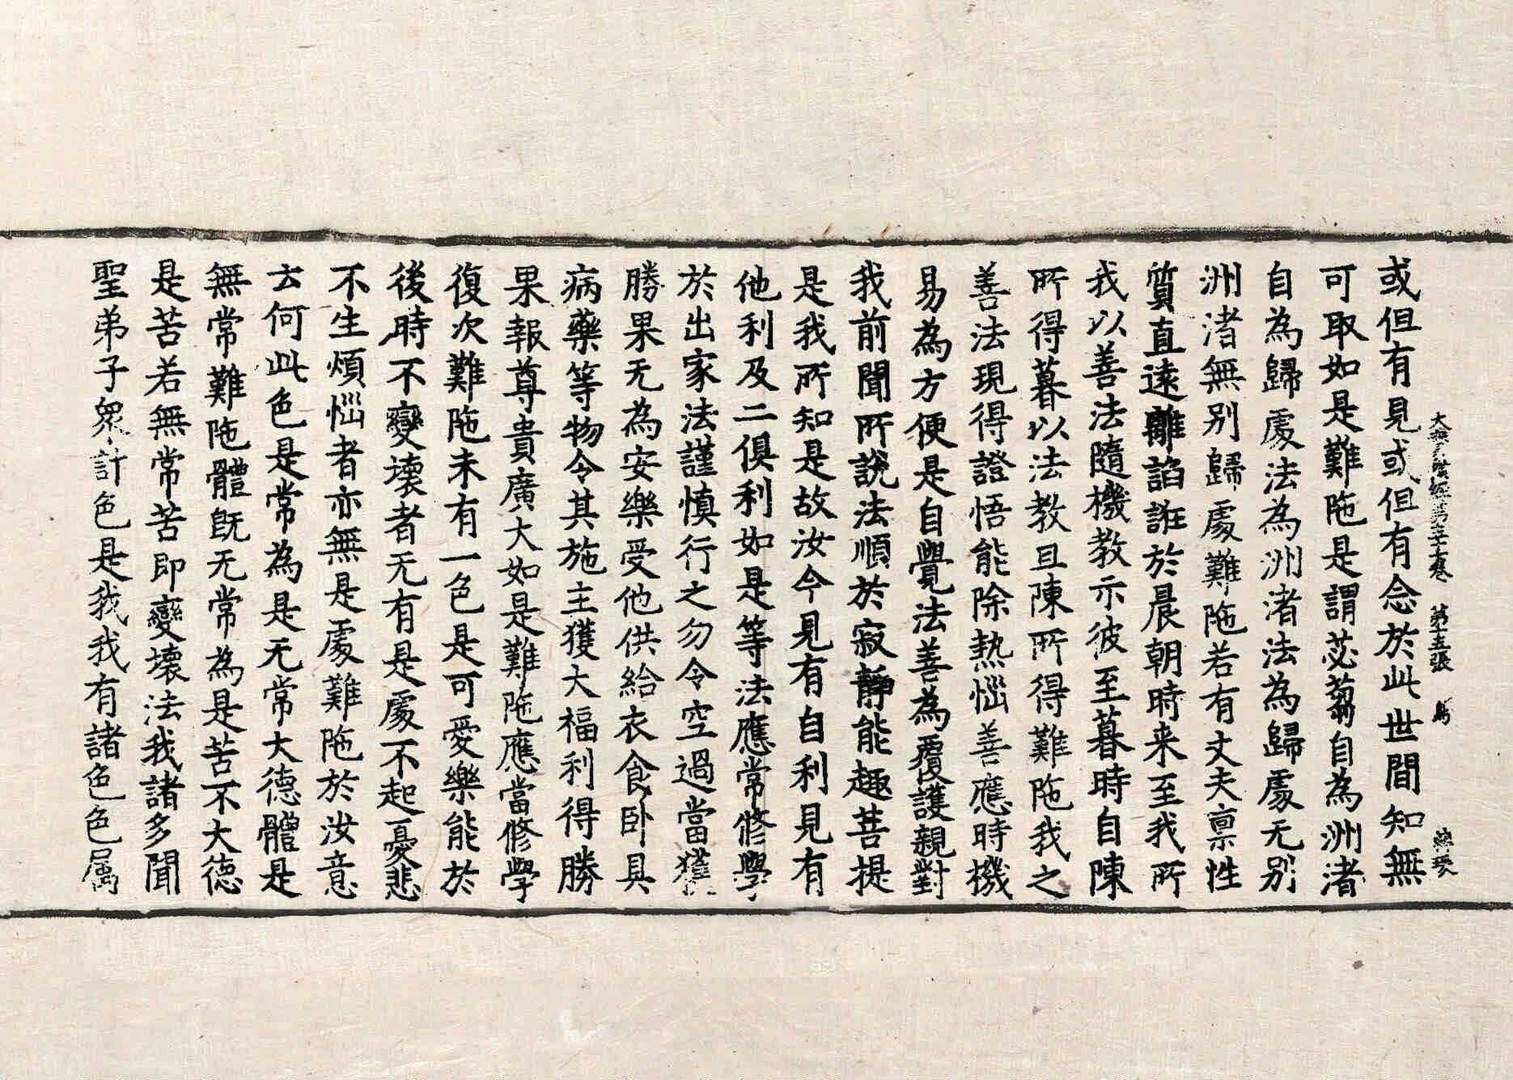 大寶積經第五十六卷　第十五張　鳥
或但有見或但有念於此世間知無
可取如是難陁是謂苾蒭自為洲渚
自為歸處法為洲渚法為歸處无別
洲渚無别歸處難陁若有丈夫禀性
質直遠離諂誑於晨朝時来至我所
我以善法隨機教示彼至暮時自陳
所得暮以法教旦陳所得難陁我之
善法現得證悟能除热惱善應時機
易為方便是自覺法善為覆護親對
我前聞所說法順於寂靜能趣菩提
是我所知是故汝今見有自利見有
他利及二俱利如是等法應常修學
於出家法謹慎行之勿令空過當獲
勝果无為安樂受他供給衣食卧具
病藥等物令其施主獲大福利得勝
果報尊貴廣大如是難陁應當修學
復次難陁未有一色是可愛樂能於
後時不變壞者无有是處不起憂悲
不生煩惱者亦無是處難陁於汝意
云何此色是常為是无常大德體是
無常難陁體既无常為是苦不大德
是苦若無常苦即變壞法我諸多聞
聖弟子衆計色是我我有諸色色属